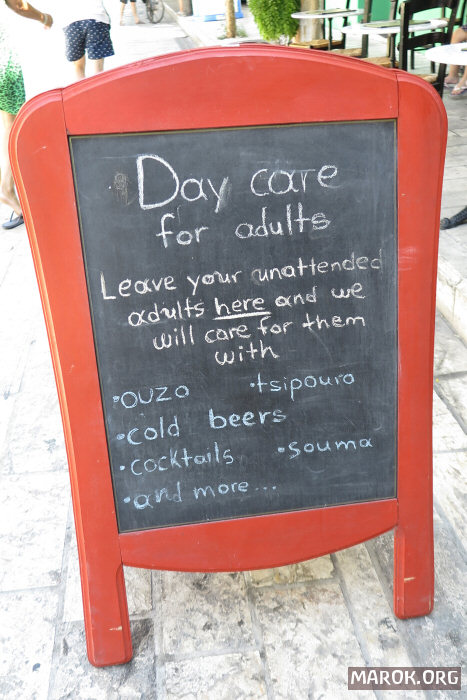 Day care
for adults
Leave your unattended
adults here and we
will care for them
with
•ouzo •tsipouro
•cold beers
•cocktails •souma
•and more...
MAROK.ORG